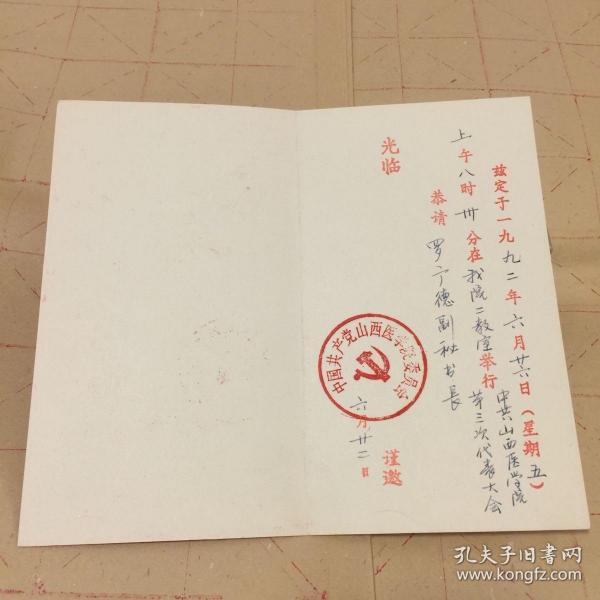 兹定于一九九二年六月廿六日(星期五)
上午八时卅分在我院二教室举行中共山西医学院
第三次代表大会
恭请罗广德副秘书长
光临
谨邀
中国共产党山西医学院委员会
六月廿二日
孔夫子旧书网
www.kongfz.com